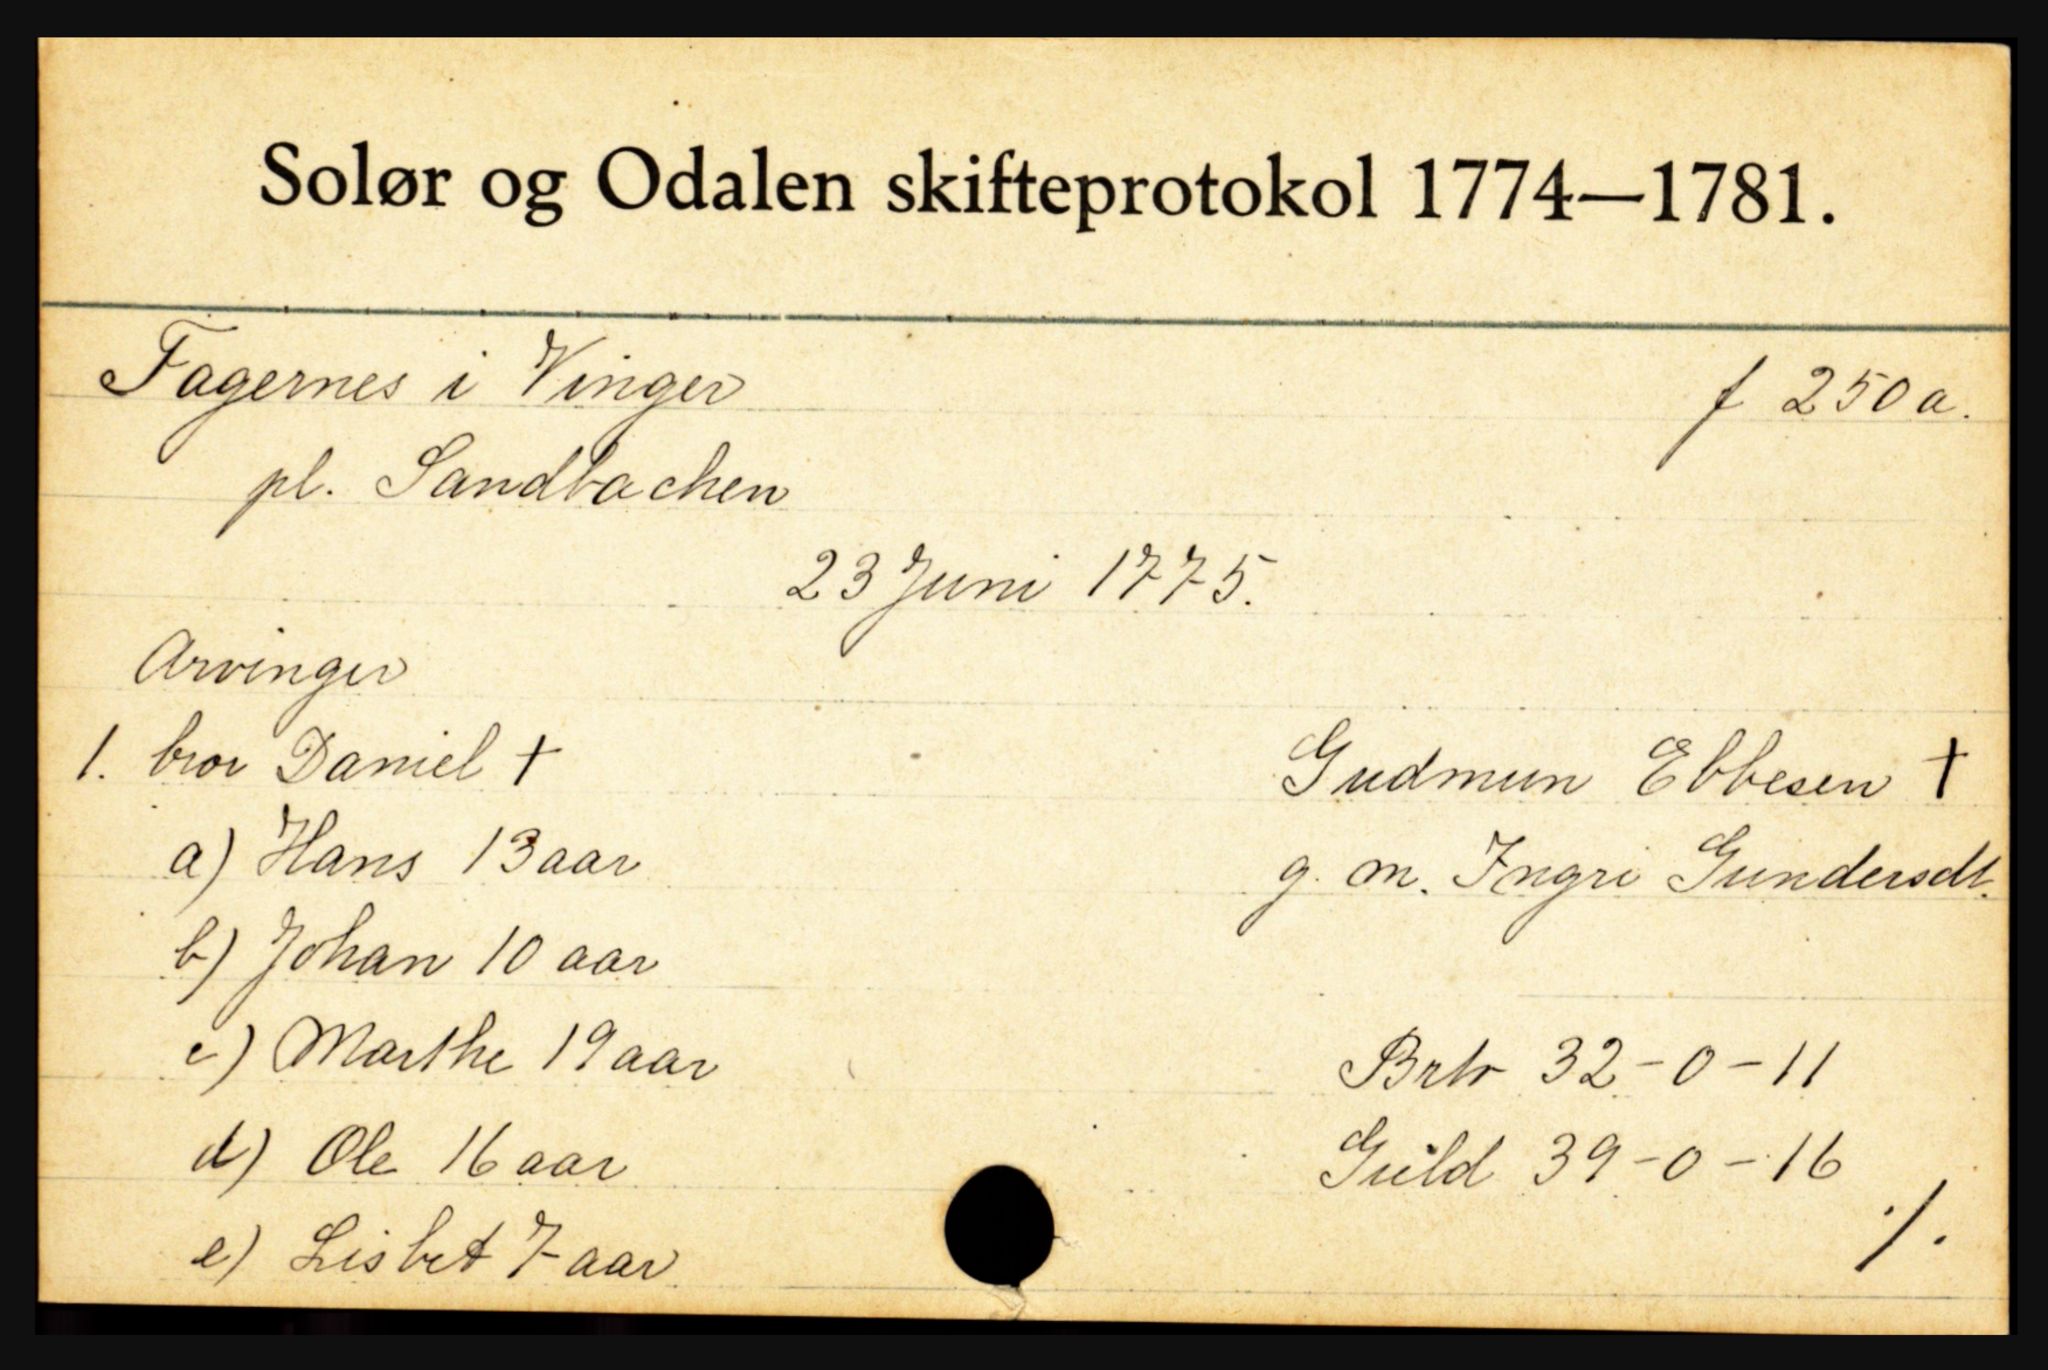 Solør og Odalen skifteprotokol 1774—1781.
Fagernes i Vinger f 250a.
pl. Sandbachen
23 Juni 1775.
Arvinger
1. bror Daniel †
a) Hans 13 aar
b) Johan 10 aar
c) Marthe 19 aar
d) Ole 16 aar
e) Lisbet 7 aar
Gudmun Ebbesen †
g. m. Ingri Gundersdt.
Brto 32-0-11
Gield 39-0-16
./.